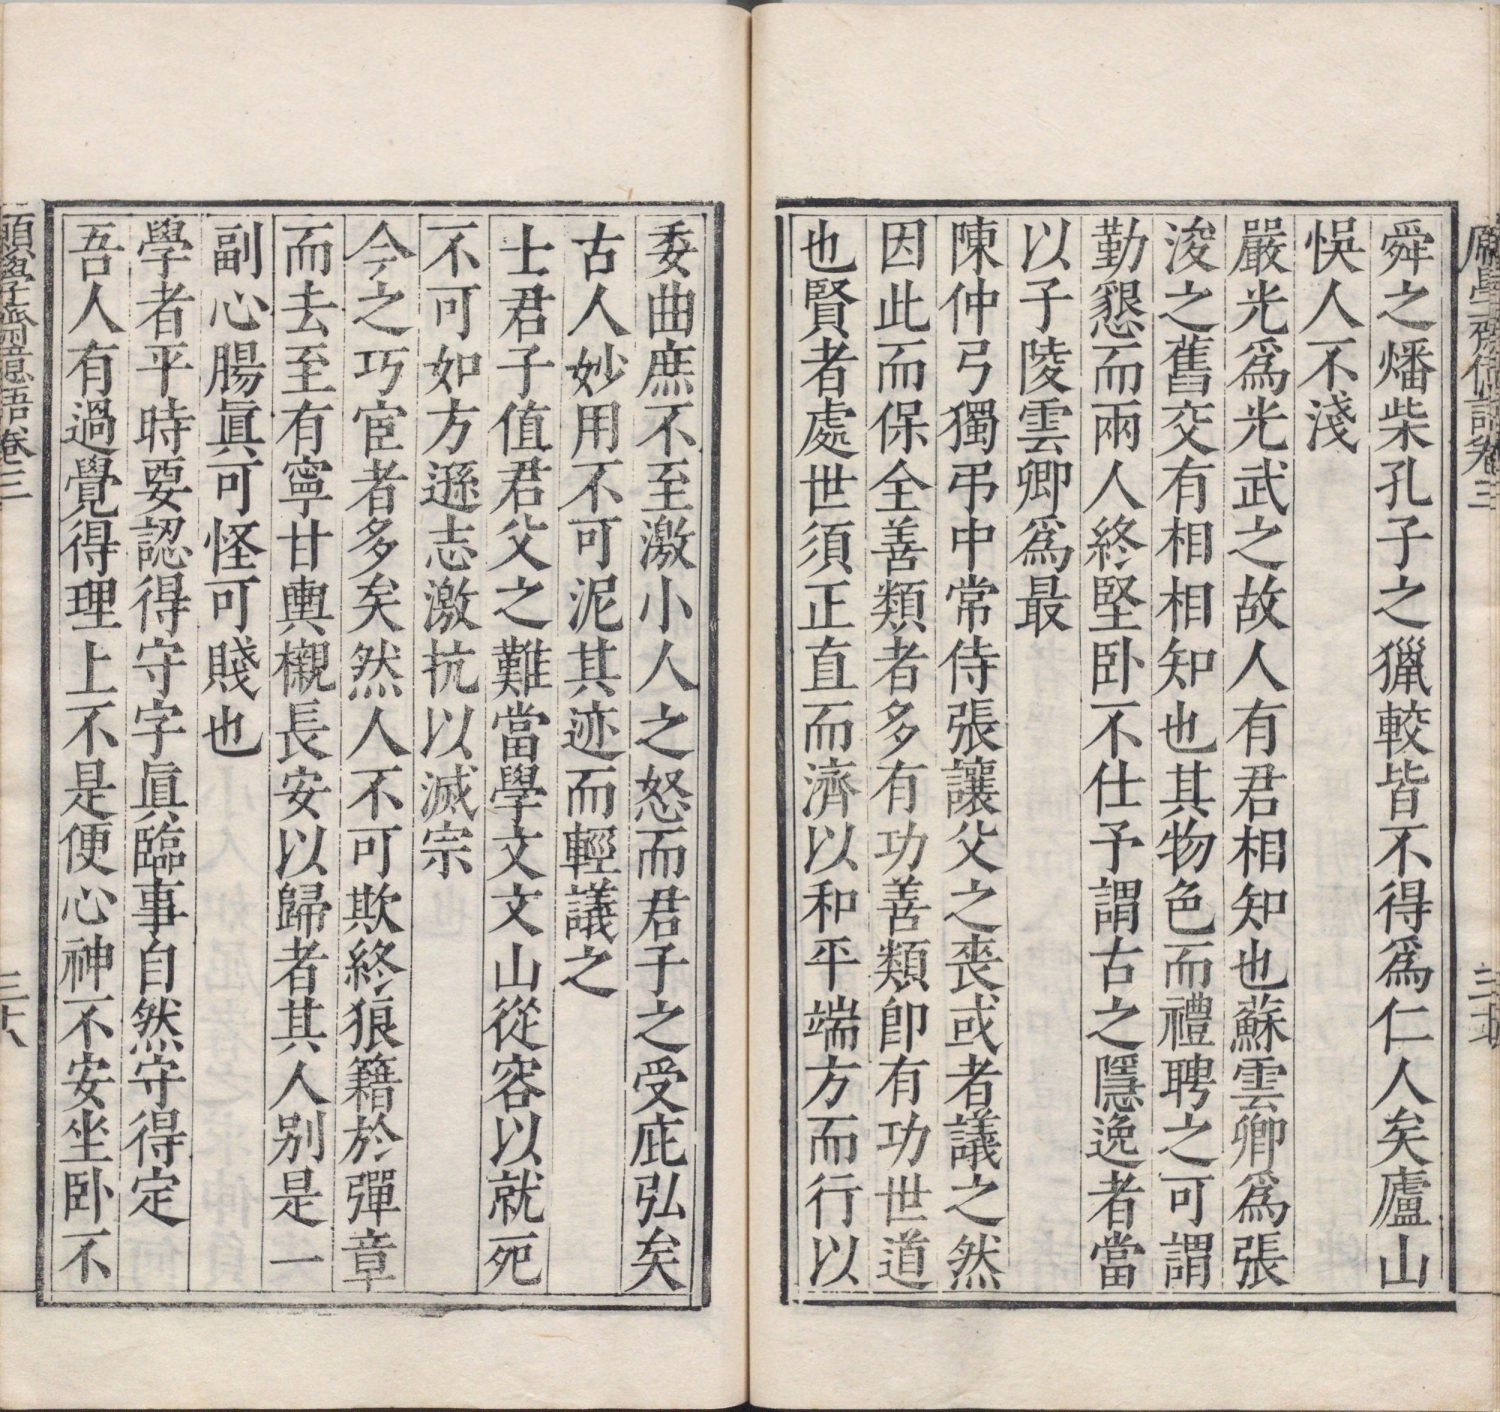 舜之燔柴孔子之獵較皆不得爲仁人矣廬山
悞人不淺
嚴光爲光武之故人有君相知也蘇雲卿爲張
浚之舊交有相相知也其物色而禮聘之可謂
勤懇而兩人終堅卧不仕予謂古之隱逸者當
以子陵雲卿爲最
陳仲弓獨弔中常侍張讓父之喪或者議之然
因此而保全善類者多有功善類卽有功世道
也賢者處世須正直而濟以和平端方而行以
委曲庶不至激小人之怒而君子之受庇弘矣
古人妙用不可泥其迹而輕議之
士君子值君父之難當學文文山從容以就死
不可如方遜志激抗以滅宗
今之巧宦者多矣然人不可欺終狼籍於彈章
而去至有寧甘輿櫬長安以歸者其人别是一
副心腸眞可怪可賤也
學者平時要認得守字眞臨事自然守得定
吾人有過覺得理上不是便心神不安坐卧不
願學齋億語卷三
三十八